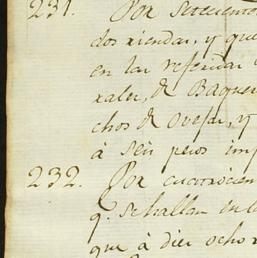 231. Por setecientos
dos riendas, y que
en las referidas
xales, de Baquer
chos de ovejas, y
à seis pesos imp
232. Por cuatrocien
q.e se hallan en l
que à diez ocho r